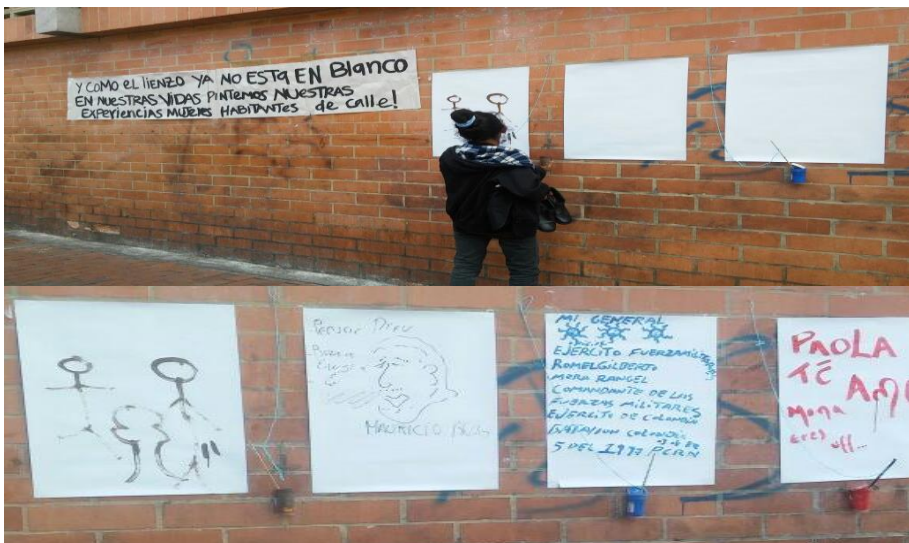 Y COMO EL LIENZO YA NO ESTA EN BlANCO
EN NUESTRAS VIDAS PINTEMOS NUESTRAS
EXPERIENCIAS MUJERES HABITANTES de calle!
MAURICIO
MI GENERAL
EJERCITO FUERZAMILITARES
ROMELGILBERTO
MORA RANGEL
COMANDANTE DE LAS
FUERZAS MILITARES
EJERCITO DE COLOMBIA
5 DEL 1997
PAOLA
TÉ AMO
Mona
eres
uff...